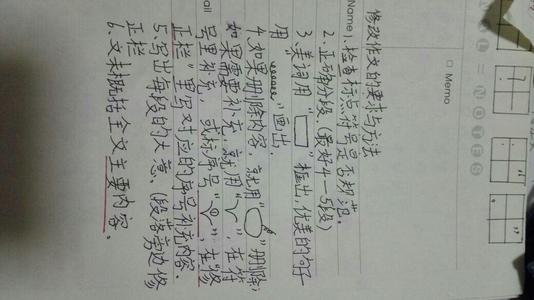 □ Memo
Name
修改作文的要求与方法
1、检查标点符号是否规范。
2.正确分段。(最好4—5段)
3、美词用"▭"框出,优美的句子
用"﹏﹏"画出。
4.如果删除内容,就用" "删除;
如果需要补充,就用"﹀",在符
号里补充,或标序号" ",在"修
正栏"里写对应的序号补充内容。
5、写出每段的大意、(段落旁边修
正栏
6、文末概括全文主要内容。
ail
NOTES